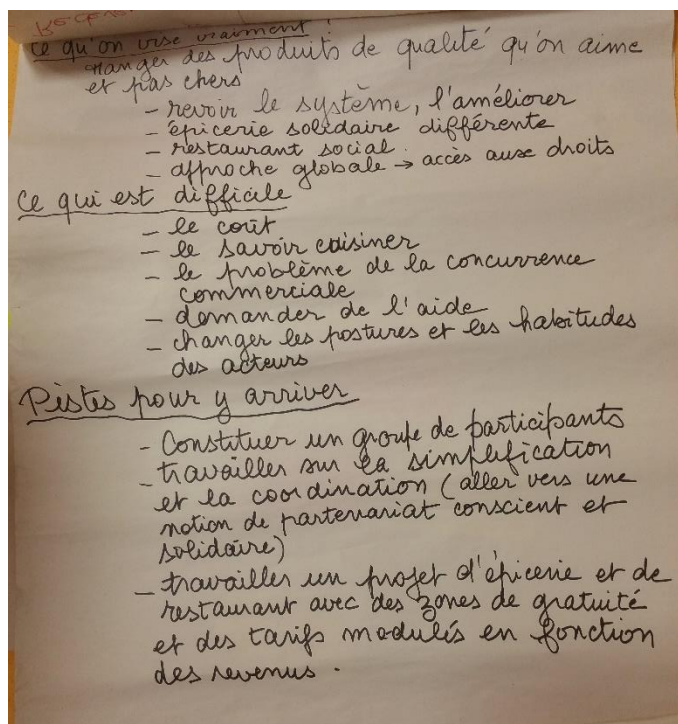 ce qu'on vise vraiment !
manger des produits de qualité qu'on aime
et pas chers
- revoir le système, l'améliorer
- épicerie solidaire différente
- restaurant social.
- approche globale → accès aux droits
Ce qui est difficile
- le coût
- le savoir cuisiner
- le problème de la concurrence
commerciale
- demander de l'aide
- changer les postures et les habitudes
des acteurs
Pistes pour y arriver
- Constituer un groupe de participants
- travailler sur la simplification
et la coordination (aller vers une
notion de partenariat conscient et
solidaire)
- travailler un projet d'épicerie et de
restaurant avec des zones de gratuité
et des tarifs modulés en fonction
des revenus.